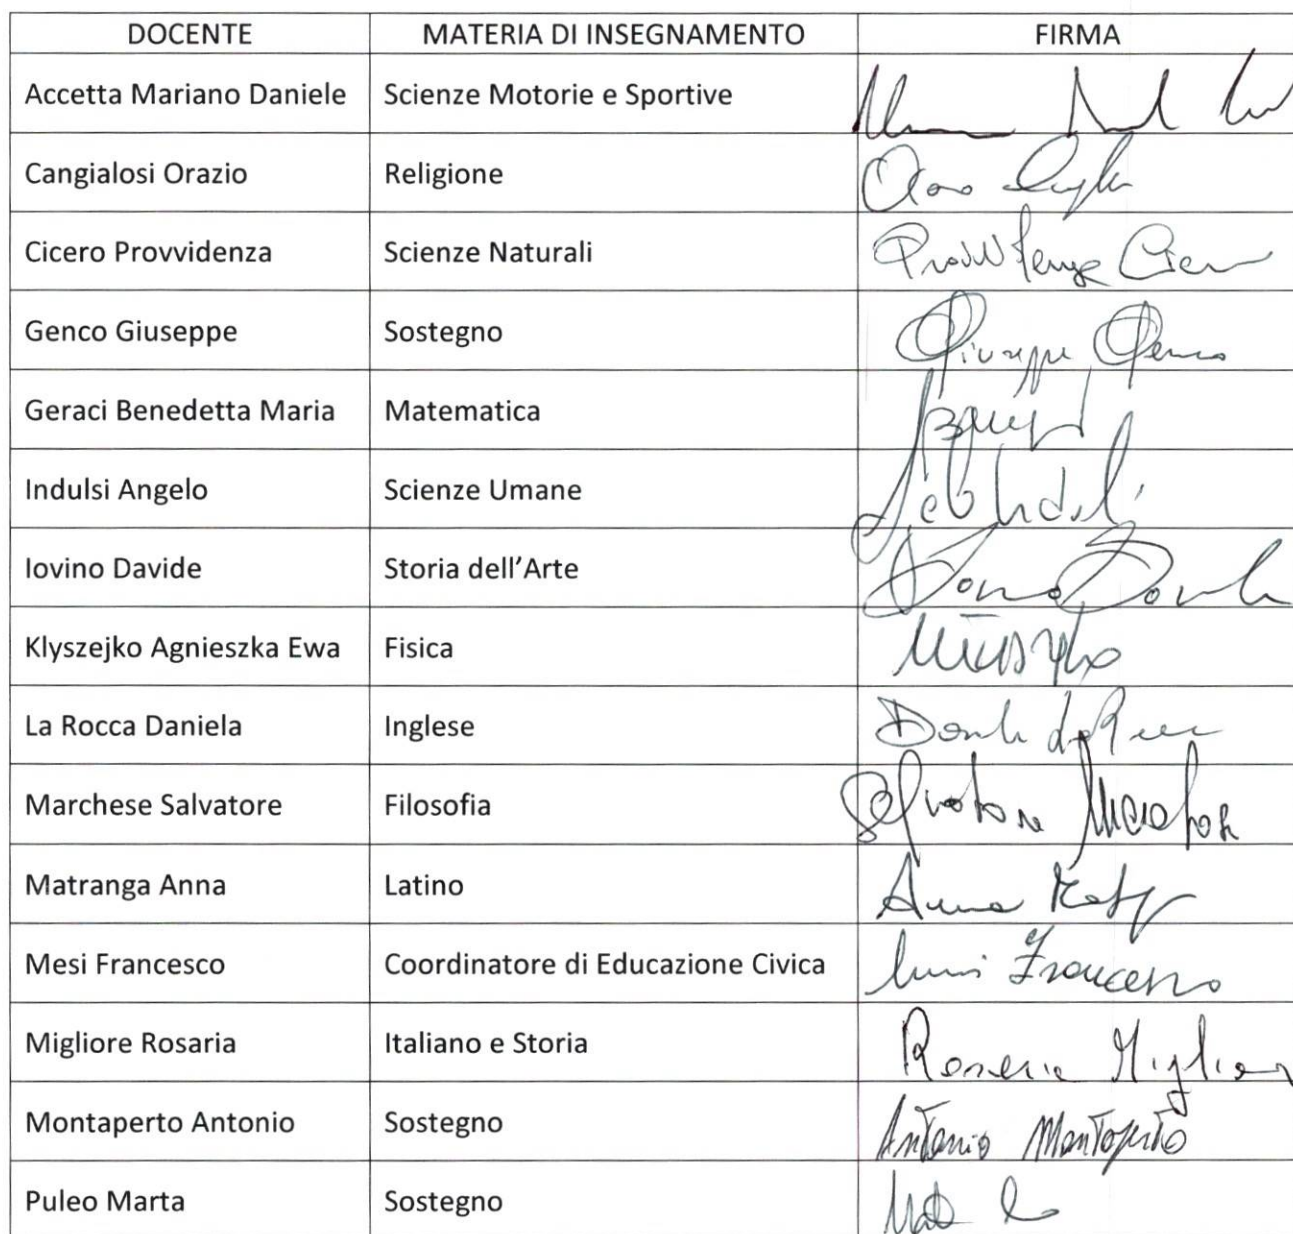 DOCENTE MATERIA DI INSEGNAMENTO FIRMA
Accetta Mariano Daniele Scienze Motorie e Sportive
Cangialosi Orazio Religione
Cicero Provvidenza Scienze Naturali
Genco Giuseppe Sostegno Giuseppe Genco
Geraci Benedetta Maria Matematica
Indulsi Angelo Scienze Umane
Iovino Davide Storia dell'Arte
Klyszejko Agnieszka Ewa Fisica
La Rocca Daniela Inglese
Marchese Salvatore Filosofia Salvatore Marchese
Matranga Anna Latino Anna
Mesi Francesco Coordinatore di Educazione Civica Mesi Francesco
Migliore Rosaria Italiano e Storia Rosaria Migliore
Montaperto Antonio Sostegno Antonio Montaperto
Puleo Marta Sostegno